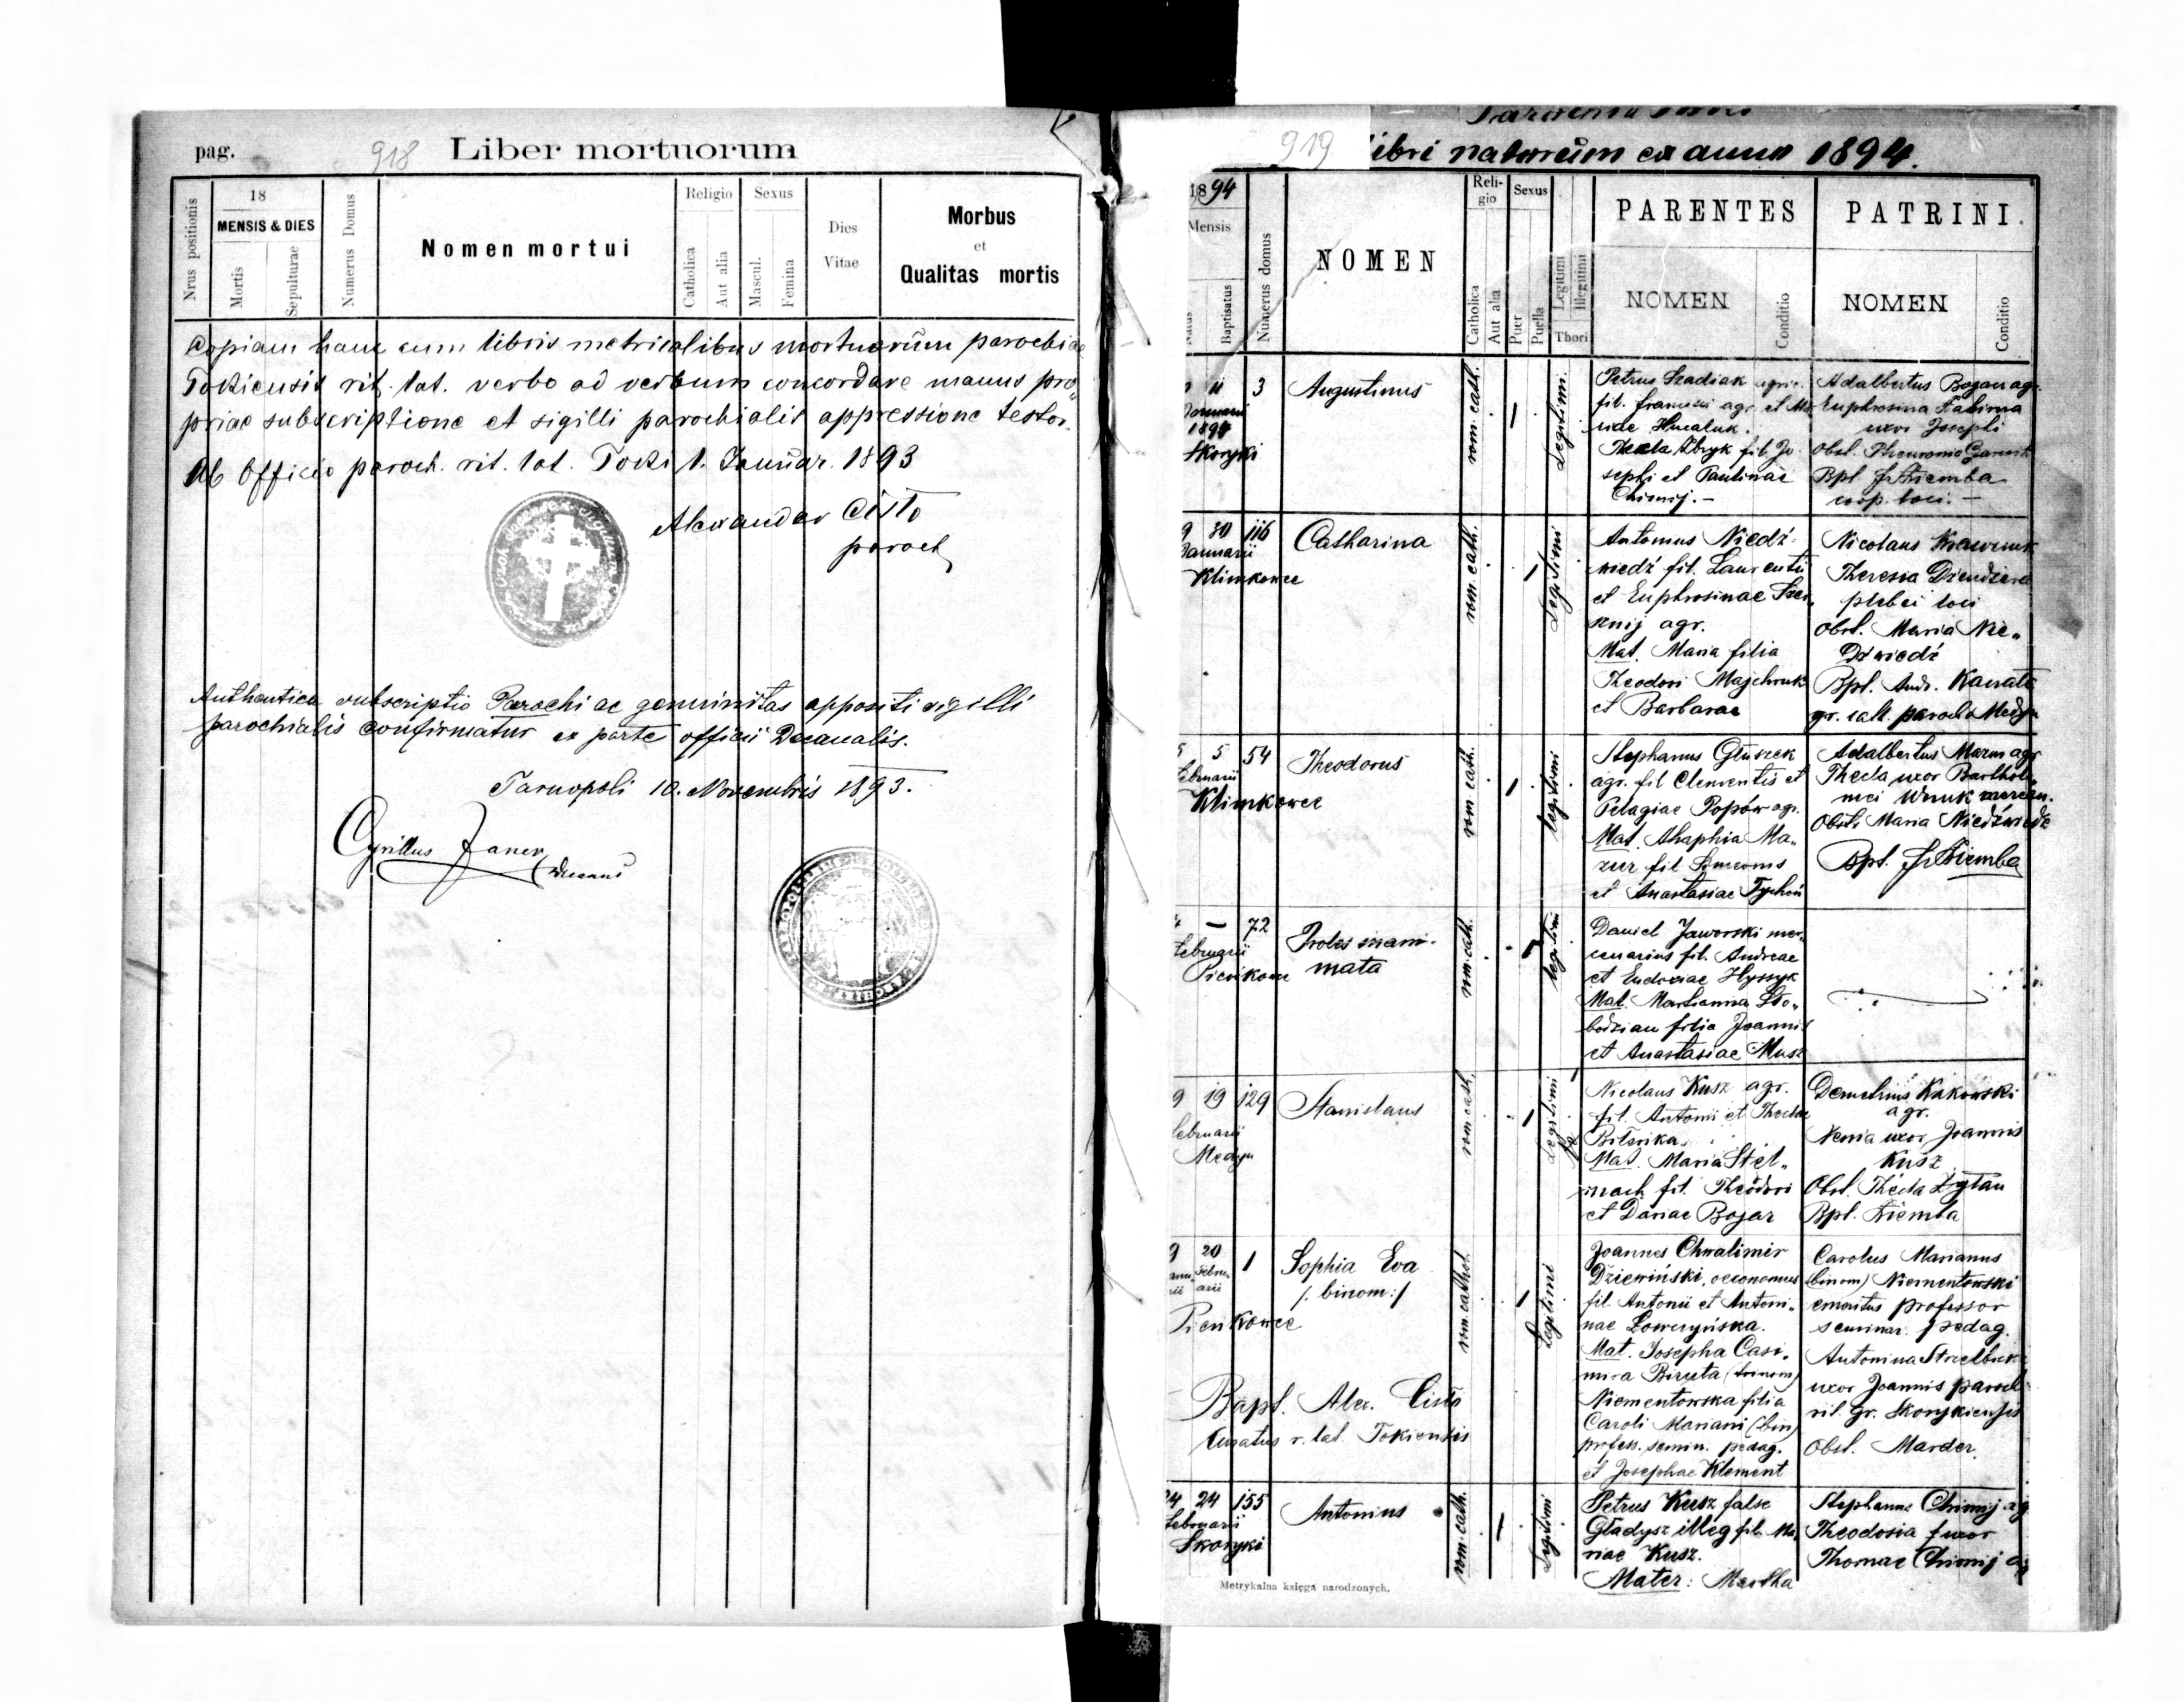 pag.
918
Liber mortuorum
Nrus positionis
18
MENSIS & DIES
Mortis
Sepulturae
Numerus Domus
Nomen mortui
Religio
Catholica
Aut alia
Sexus
Mascul.
Femina
Dies
Vitae
Morbus
et
Qualitas mortis
Copiam hanc cum libris metricalibus mortuorum parochiae
Tokiensis rit. lat. verbo ad verbum concordare manus pro„
priae subscriptione et sigilli parochialis appressione testor.
Ab Officio paroch. rit. lat. Toki 1. Januar. 1893
Alexander Cisło
paroch
Authentica subscriptio Parochi ac genuinitas appositi sigilli
parochialis confirmatur ex parte officii Decanalis.
Tarnopoli 10. Novembris 1893.
Cyrillus Janer
Decanus
919
ibri natorum ex anno 1894.
1894
Mensis
Natus
Baptisatus
Numerus domus
NOMEN
Reli-
gio
Catholica
Aut alia
Sexus
Puer
Puella
Legitimi
Illegitimi
Thori
PARENTES
NOMEN
Conditio
PATRINI.
NOMEN
Conditio
11 3
Januarii
1894
Skoryki
Augustinus
rom. cath.
1
Legitimi.
Petrus Szadiak agric.
fil. Francisci agr. et Ma
Thecla Zbryk fil. Jo
sephi et Paulinae
Chimij. —
Adalbertus Bogan agr.
Euphrosina
uxor Josephi
Obst.
Bpt. Fr Ziemba
coop. loci. —
9 30 116
Januarii
Klimkowce
Catharina
rom. cath.
1
Legitimi
Antonius Niedź-
wiedź fil. Laurentii
et Euphrosinae
agr.
Mat. Maria filia
Theodori Majchruk
et Barbarae
Nicolaus Krawczuk
Theresia
plebei loci
Obst. Maria Nie„
dźwiedź
Bpt. Andr.
gr. cath. paroch. Medyn
5 5 54
Februarii
Klimkowce
Theodorus
rom. cath.
1
legitimi
Stephanus Głuszek
agr. fil Clementis et
Pelagiae Popów agr.
Mat. Ahaphia Ma„
zur fil Simeonis
et Anastasiae Tychoń
Adalbertus Mazur agr
Thecla uxor Bartholo„
mei Wnuk mercen.
Obst. Maria Niedźwiedź
Bpt. Fr Ziemba
— 72
Februarii
Pieńkowce
Proles inani-
mata
rom. cath.
1
legitimi
Daniel Jaworski mer„
cenarius fil. Andreae
et Eudoxiae Hyszyk
Mat. Marianna Sło„
bodzian filia Joannis
et Anastasiae Musz
9 19 129
Februarii
Medyn
Stanislaus
rom. cath.
1
Legitimi
Nicolaus Kusz agr.
fil. Antonii et Theclae
Mat. Maria Stel„
mach fil. Theodori
et Dariae Bojar
Demetrius Kakowski
agr.
Xenia uxor Joannis
Kusz
Obst. Thecla Zygtan
Bpt. Ziemba
9 20 1
Febru-
arii
Pieńkowce
Sophia Eva
/: binom:/
rom. cathol.
1
Legitimi
Joannes Chwalimir
Dziewiński, oeconomus
fil. Antonii et Antoni„
nae Łowczyńska.
Mat. Josepha Casi„
mira Biruta (trinom)
Niementowska filia
Caroli Mariani (bin)
profess. semin. pedag.
et Josephae Klement
Carolus Marianus
(binom) Niementowski
emeritus professor
seminar. pedag.
Antonina
uxor Joannis paroch
rit. gr. Skorykiensis
Obst. Marder
Bapt. Alex. Cisło
Curatus r. lat. Tokiensis
24 24 155
Februarii
Skoryki
Antonius
rom. cath.
1
Legitimi
Petrus Kusz false
Gładysz illeg fil. Ma„
riae Kusz.
Mater: Martha
Stephanus Chimij ag
Theodosia uxor
Thomae Chimij ag
Metrykalna księga narodzonych.